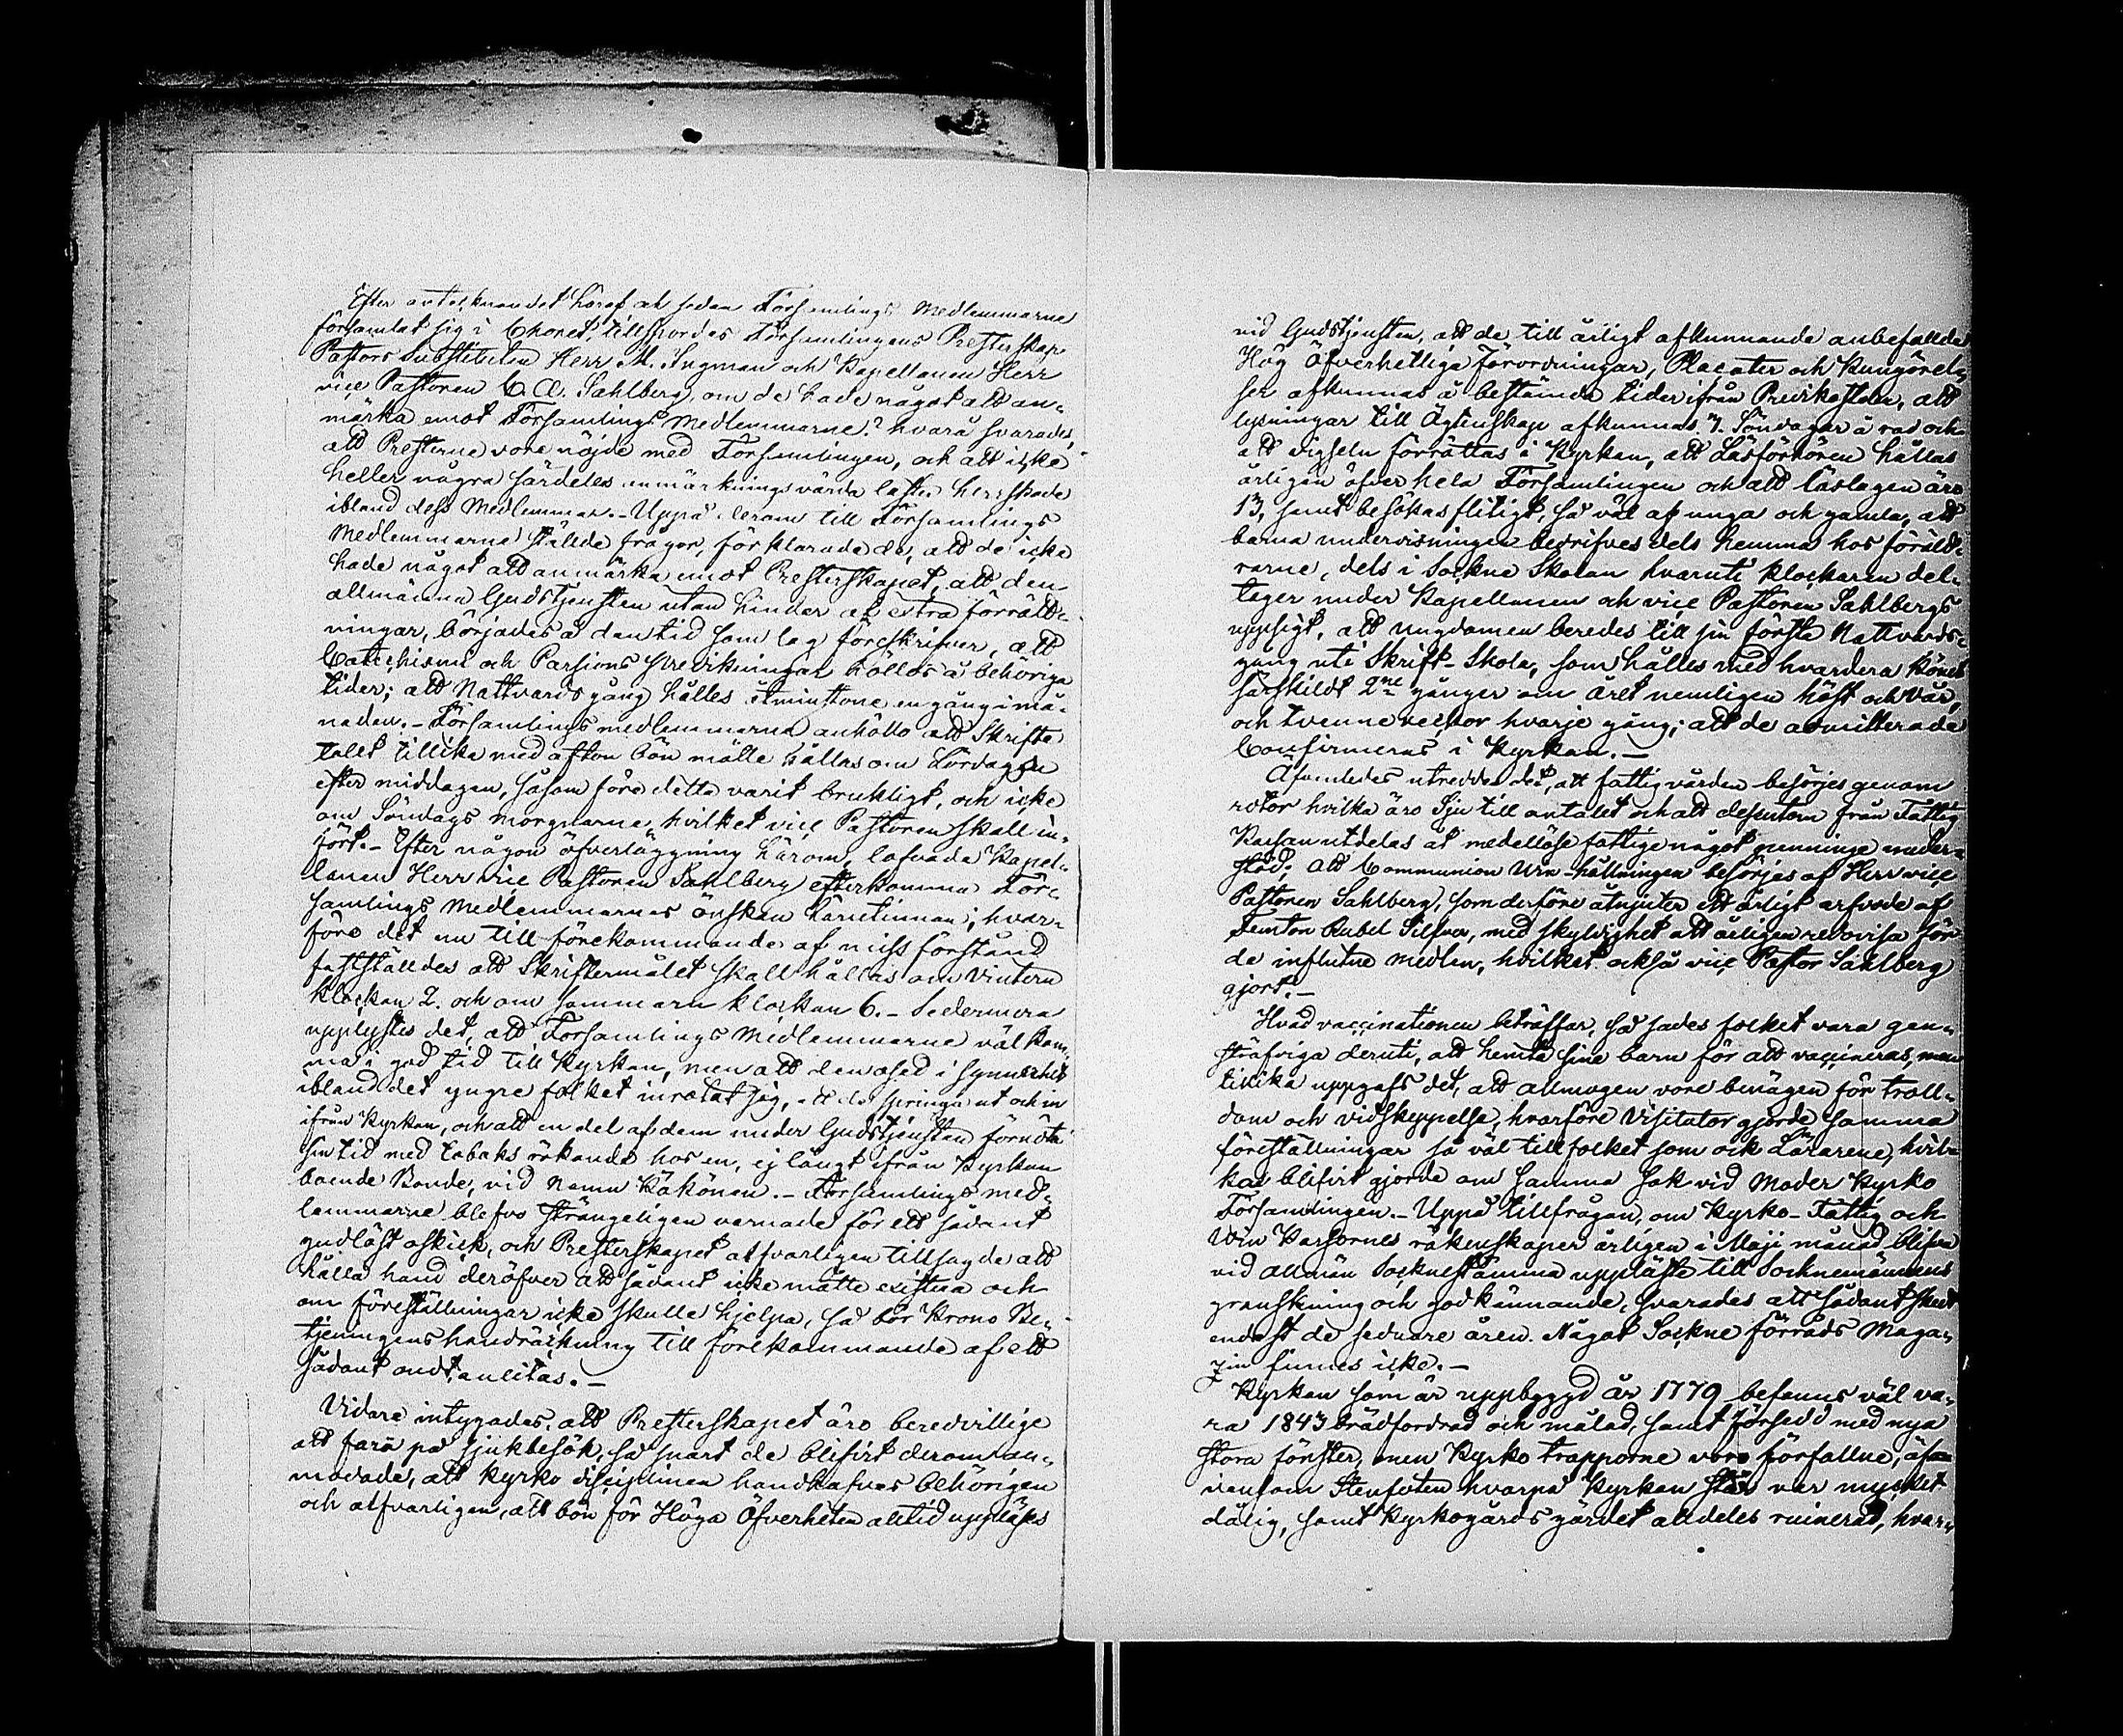 Efter antecknandet häraf och sedan Församlings Medlemmarne
församlat sig i Choret, tillspordes Församlingens Presterskap
Pastors Substituten Herr M. Ingman och Kapellanen Herr
vice Pastoren C. Æ. Sahlberg, om de hade något att an-
märka emot Församlings Medlemmarne? hvarå svarades,
att Presterne vore nöjde med Församlingen, och att icke
heller några särdeles anmärkningsvärda laster herrskade
ibland dess Medlemmar. - Uppå derom till Församlings
Medlemmarne ställde frågor, förklarade de, att de icke
hade något att anmärka emot Presterskapet, att den
allmänna Gudstjensten utan hinder af extra förrätt-
ningar, börjades å den tid som lag föreskrifver, att
Catechismi och Passions predikningar hållas å behöriga
tider; att Nattvardsgång hålles åtminstone en gång i må-
naden. - Församlings medlemmarne anhöllo att Skrifte
talet tillika med afton bön måtte hållas om Lördagen
efter middagen, såsom före detta varit brukligt, och icke
om Söndags morgnarne, hvilket vice Pastoren skall in-
fört. - Efter någon öfverläggning härom, lofvade Kapel-
lanen Herr vice Pastoren Sahlberg efterkomma För-
samlings Medlemmarnes önskan härutinnan; hvar-
före det nu till förekommande af missförstånd
fastställdes att Skriftermålet skall hållas om Vintern
klockan 2. och om sommarn klockan 6. - Sedermera
upplystes det, att Församlings Medlemmarne väl kom-
ma i god tid till Kyrkan, men att den osed i synnerhet
ibland det yngre folket inrotat sig, att de springa ut och in
ifrån Kyrkan, och att en del af dem under Gudstjensten förnöta
sin tid med tobaks rökande hos en, ej långt ifrån Kyrkan
boende Bonde, vid namn Käkönen. - Församlings med-
lemmarne blefvo strängeligen varnade för ett sådant
gudlöst oskick, och Presterskapet alfvarligen tillsagde att
hålla hand deröfver att sådant icke måtte existera och
om föreställningar icke skulle hjelpa, så bör Krono Be-
tjeningens handräckning till förekommande af ett
sådant ondt, anlitas. -
Vidare intygades, att Presterskapet äro beredvillige
att fara på sjukbesök, så snart de blifvit derom an-
modade, att kyrko disciplinen handhafves behörigen
och alfvarligen, att bön för Höga Öfverheten alltid uppläses
vid Gudstjensten, att de till årligt afkunnande anbefallde
Hög Öfverhetliga Förordningar, Placater och Kungörel-
ser afkunnas å bestämda tider ifrån Predikstolen, att
lysningar till Ägtenskap afkunnas 3. Söndagar å rad och
att vigseln förrättas i Kyrkan, att Läsförhören hållas
årligen öfver hela Församlingen och att läslagen äro
13, samt besökas flitigt, så väl af unga och gamla, att
barna undervisningen bedrifves dels hemma hos föräld-
rarne, dels i Sockne Skolan hvaruti klockaren del-
tager under Kapellanen och vice Pastoren Sahlbergs
uppsigt, att ungdomen beredes till sin första Nattvards-
gång uti Skrift-Skola, som hålles med hvardera könet
särskildt 2ne gånger om året nemligen höst och vår,
och tvenne veckor hvarje gång; att de admitterade
Confirmeras i Kyrkan. -
Afvenledes utreddes det, att fattigvården besörjes genom
rotor hvilka äro Sju till antalet och att dessutom från Fattig
Kassan utdelas åt medellöse fattige något penninge under-
stöd; att Communion Vin-hållningen besörjes af Herr vice
Pastoren Sahlberg, som derföre åtnjuter ett årligt arfvode af
Femton Rubel Silfver, med skyldighet att årligen redovisa för
de influtne medlen, hvilket också vice Pastor Sahlberg
gjort. -
Hvad vaccinationen beträffar, så sades folket vara gen-
sträfviga deruti, att hemta sine barn för att vaccineras, men
tillika uppgafs det, att allmogen vore benägen för troll-
dom och vidskeppelse, hvarföre Visitator gjorde samma
föreställningar så väl till folket som ock Lärarene, hvil-
ka blifvit gjorde om samma sak vid Moder Kyrko
Församlingen. - Uppå tillfrågan, om Kyrko- Fattig och
Vin Kassornes räkenskaper årligen i Maji månad blifva
vid allmän Socknestämma uppläste till Socknemännens
granskning och godkännande, svarades att sådant skett
endast de sednare åren. Något Sockne förråds Maga-
zin finnes icke. -
Kyrkan som är uppbyggd år 1779 befanns väl va-
ra 1843 brädfordrad och målad, samt försedd med nya
stora fönster, men Kyrko trapporne voro förfallne, äf-
ven som Stenfoten hvarpå Kyrkan står var mycket
dålig, samt Kyrkogårds gärdet alldeles ruinerad, hvar-